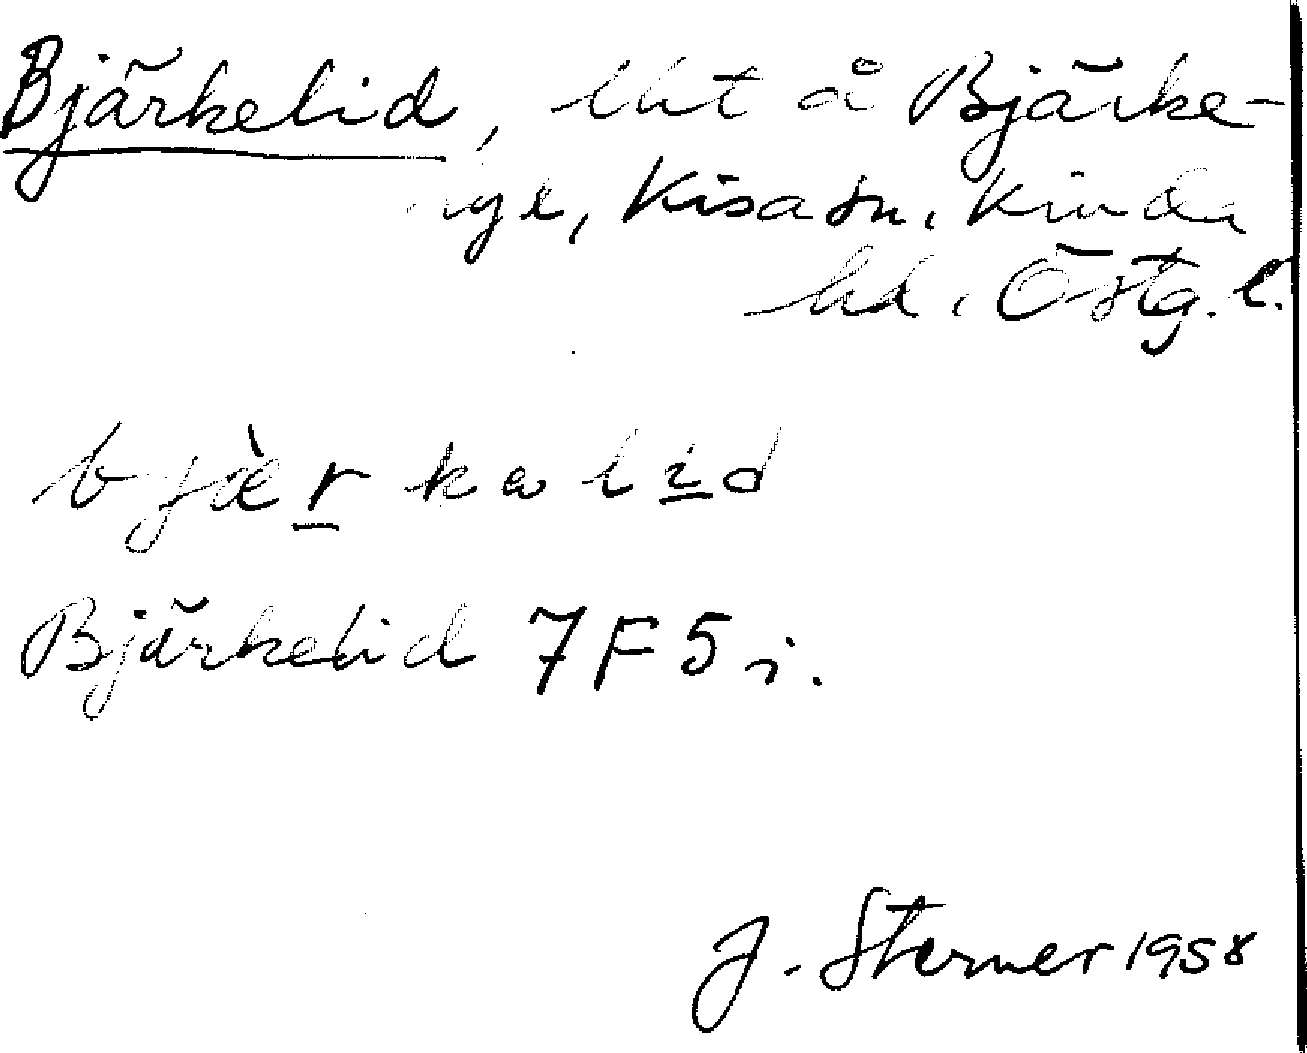 Bjärkelid, lht å Bjärke-
ryl, Kisa sn. Kinda
hd. Östg. l.
bjæ̀r kə lid
Bjärkelid 7F5i.
J. Sterner 1958